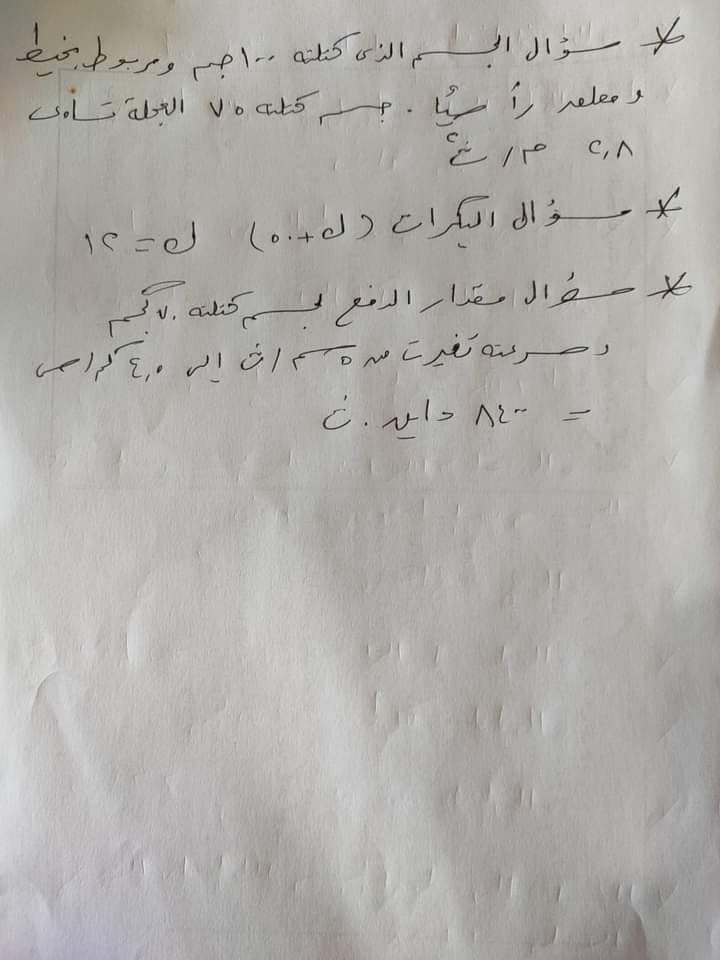 * سؤال الجسم الذى كتلته ١٠٠ جم ومربوط بخيط
ومعلق رأسيًا . جسم كتلته ٧٥ العجلة تساوى
٢,٨ م/ث٢
* سؤال البكرات (ك + ٥٠) ك = ١٢
* سؤال مقدار الدفع لجسم كتلته ٧٠ جم
وسرعته تغيرت من ٥ سم/ث إلى ٤,٥ كم/س
= ٨٤٠٠ داين . ث